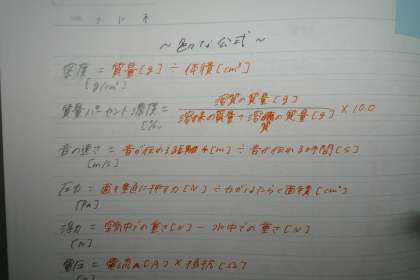 ～色々な公式～
密度 = 質量[g] ÷ 体積[cm³]
[g/cm³]
質量パーセント濃度 = 溶質の質量[g] / 溶媒の質量 + 溶質の質量[g] × 100
[%]
音の速さ = 音が伝わる距離[m] ÷ 音が伝わる時間[s]
[m/s]
圧力 = 面を垂直に押す力[N] ÷ 力がはたらく面積[cm²]
[Pa]
浮力 = 空気中での重さ[N] － 水中での重さ[N]
[N]
電圧 = 電流[A] × 抵抗[Ω]